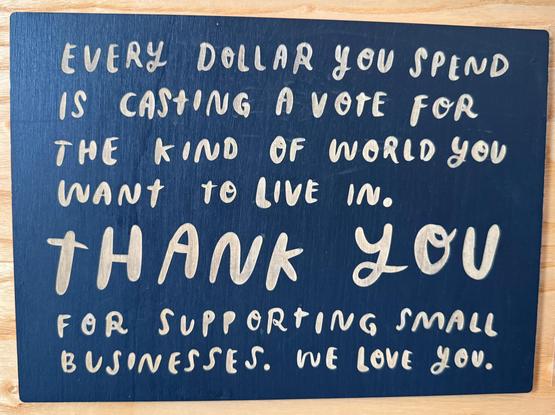 EVERY DOLLAR YOU SPEND
IS CASTING A VOTE FOR
THE KIND OF WORLD YOU
WANT TO LIVE IN.
THANK YOU
FOR SUPPORTING SMALL
BUSINESSES. WE LOVE YOU.